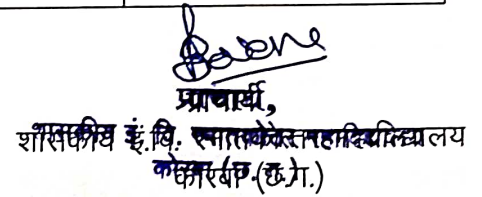 प्राचार्य,
शासकीय इं.वि. स्नातकोत्तर महाविद्यालय
कोरबा (छ.ग.)